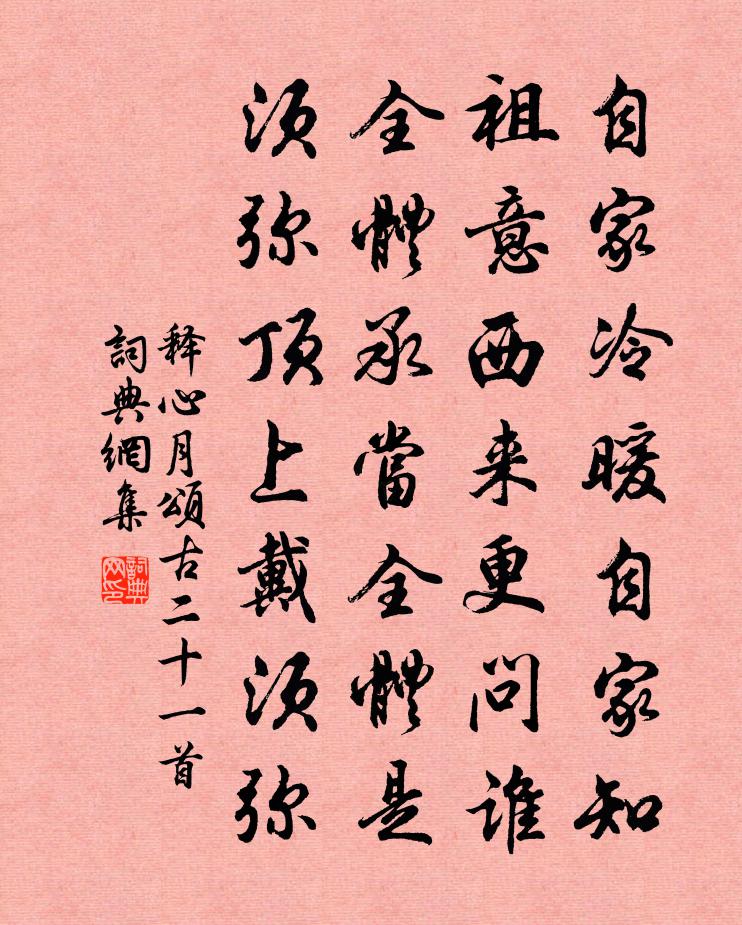 自家冷暖自家知
祖意西来更问谁
全體承當全體是
须弥顶上戴须弥
释心月頌古二十一首
詞典網集
詞典网印